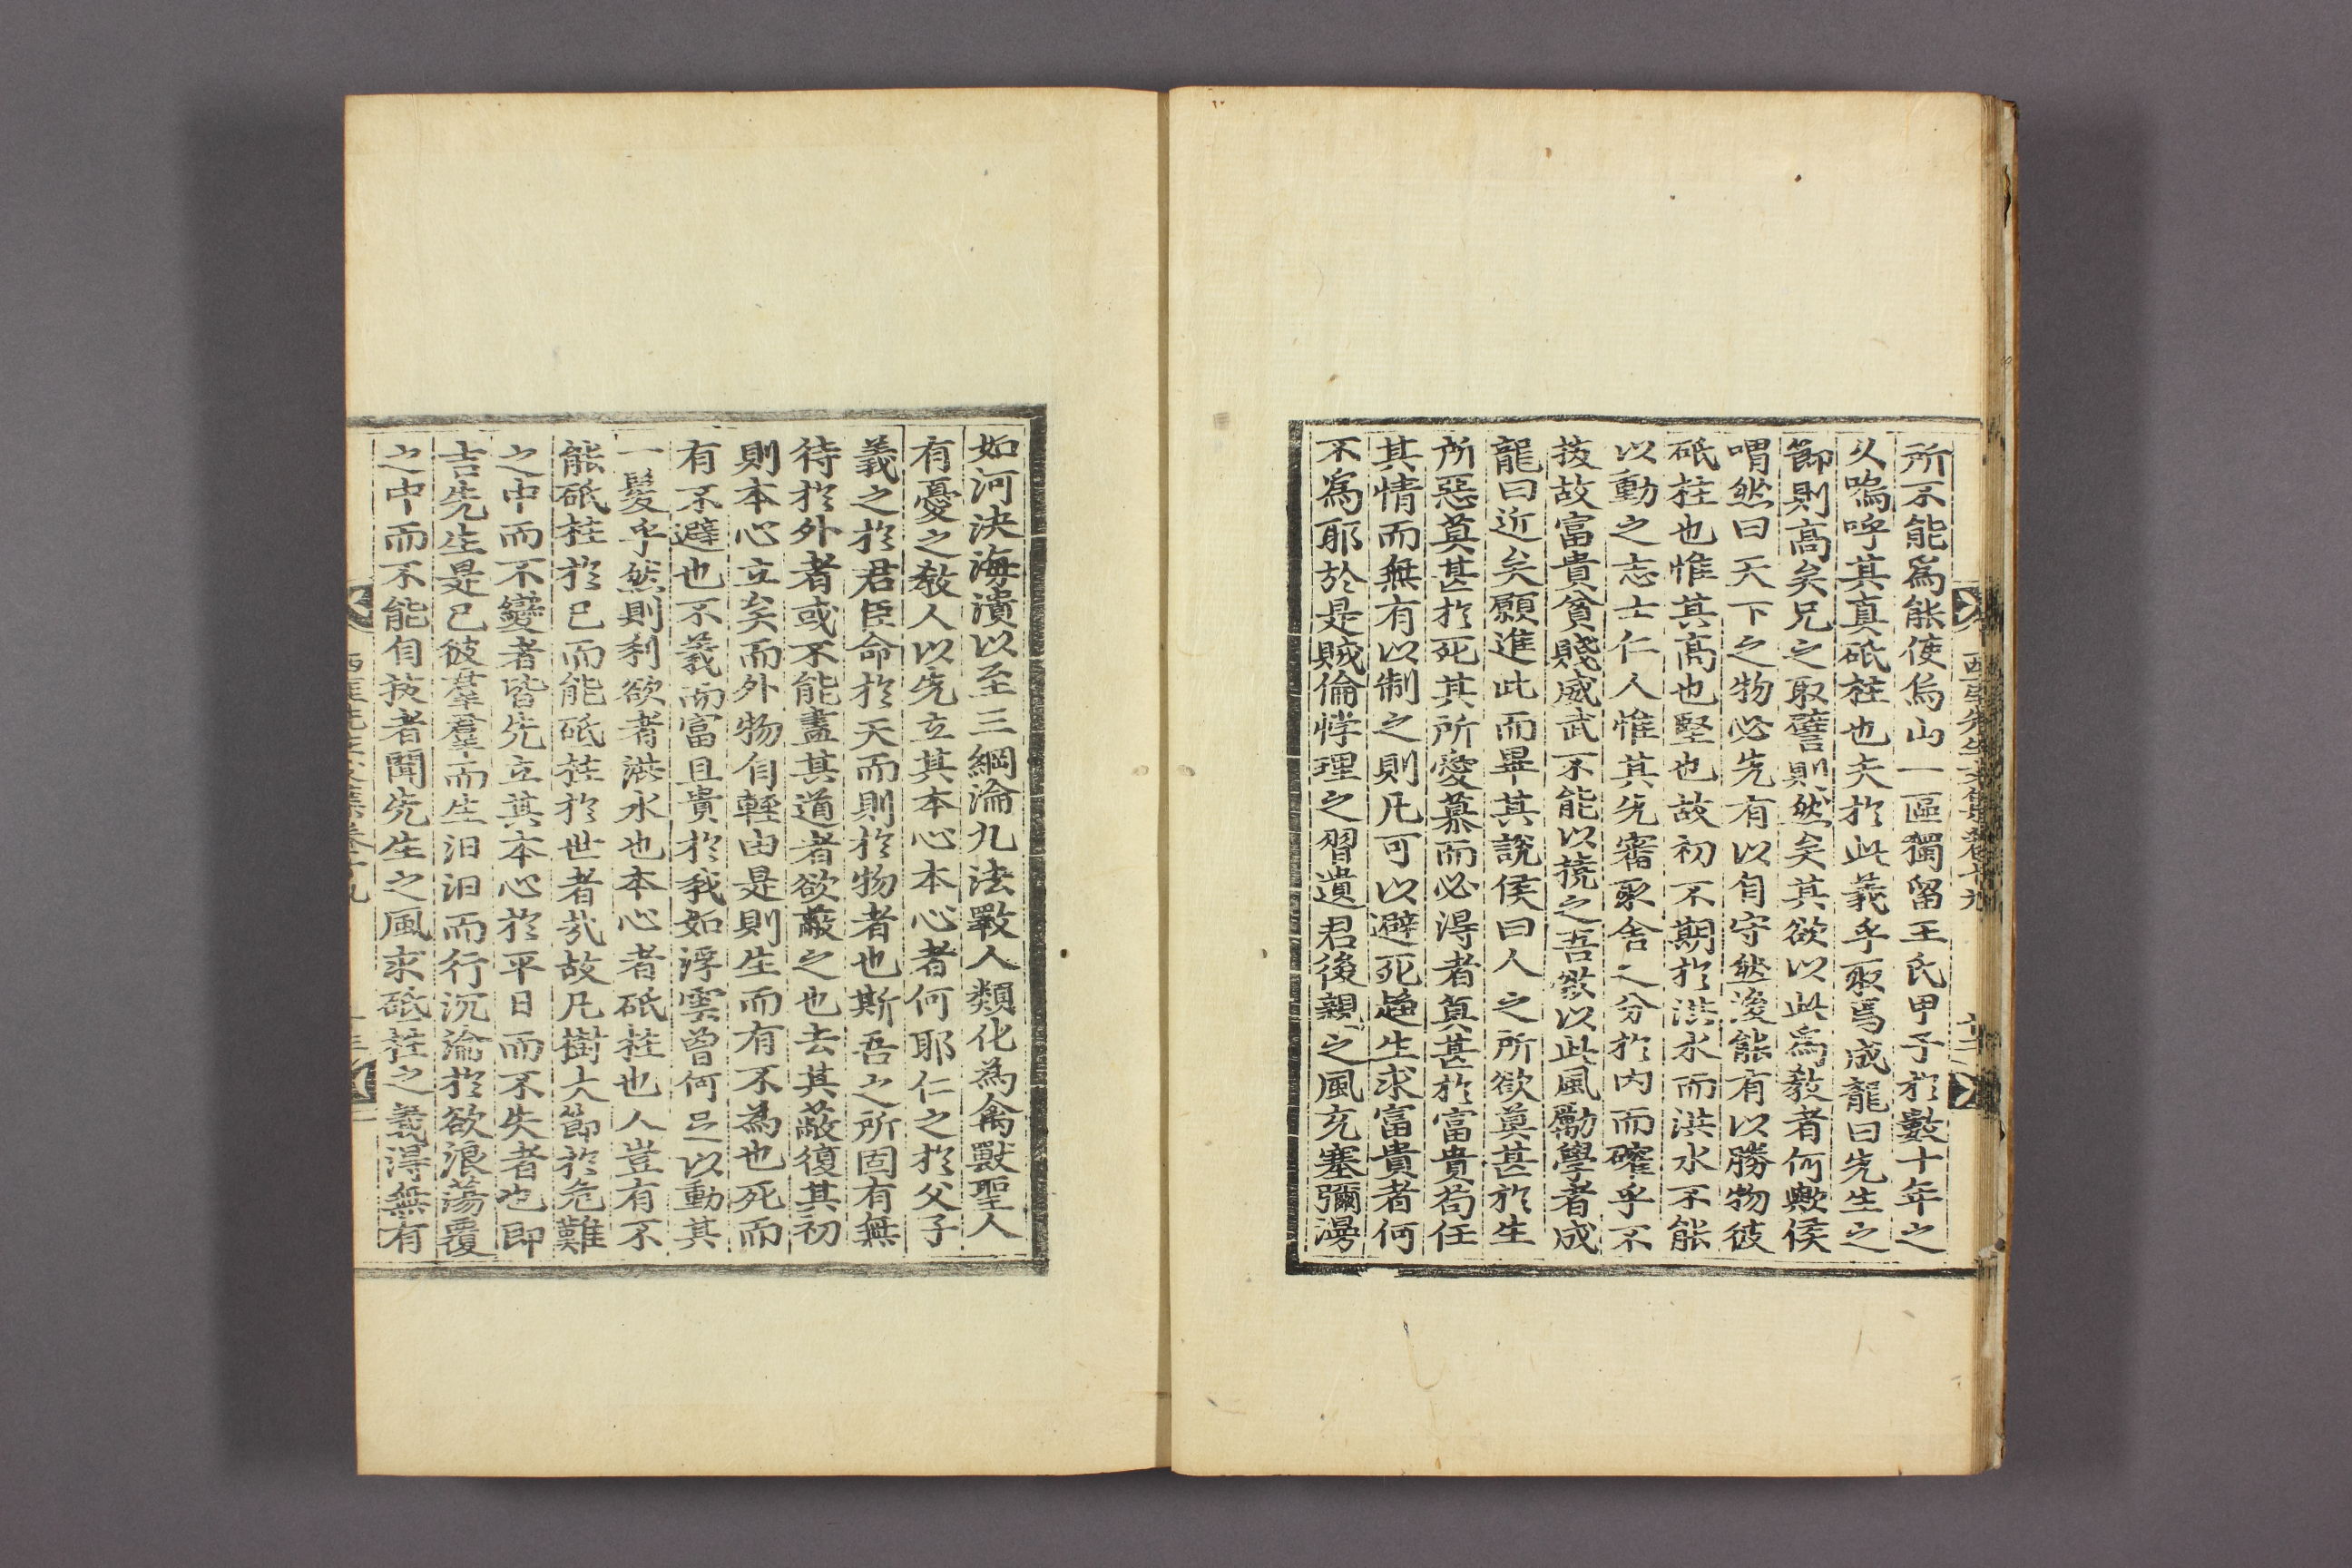 所不能爲能使烏山一區獨留王氏甲子於數十年之
久嗚呼其真砥柱也夫於此義乎取焉成龍曰先生之
節則高矣兄之取譬則然矣其欲以此爲敎者何歟侯
喟然曰天下之物必先有以自守然後能有以勝物彼
砥柱也惟其高也堅也故初不期於洪水而洪水不能
以動之志士仁人惟其先審取舍之分於內而確乎不
拔故富貴貧賤威武不能以撓之吾欲以此風勵學者成
龍曰近矣願進此而畢其說侯曰人之所欲莫甚於生
所惡莫甚於死其所愛慕而必得者莫甚於富貴苟任
其情而無有以制之則凡可以避死趍生求富貴者何
不爲耶於是賊倫悖理之習遺君後親之風充塞彌漫
如河決海潰以至三綱淪九法斁人類化為禽獸聖人
有憂之敎人以先立其本心本心者何耶仁之於父子
義之於君臣命於天而則於物者也斯吾之所固有無
待於外者或不能盡其道者欲蔽之也去其蔽復其初
則本心立矣而外物自輕由是則生而有不為也死而
有不避也不義而富且貴於我如浮雲曾何足以動其
一髮乎然則利欲者洪水也本心者砥柱也人豈有不
能砥柱於己而能砥柱於世者㢤故凡樹大節於危難
之中而不變者皆先立其本心於平日而不失者也即
吉先生是已彼羣羣而生汩汩而行沉淪於欲浪蕩覆
之中而不能自拔者聞先生之風求砥柱之義得無有
西厓先生文集卷十九